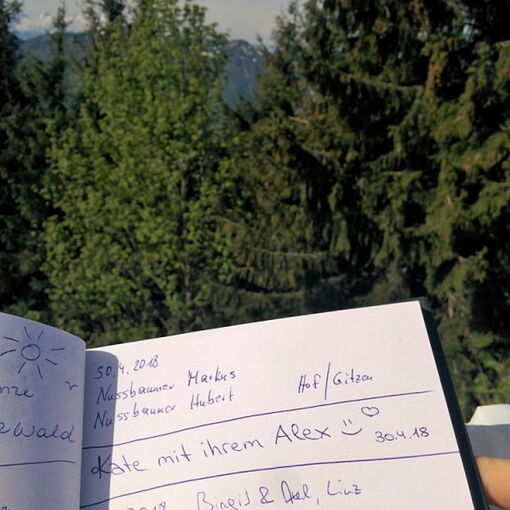 nze
zwald
30.4.2018
Nussbaumer Markus
Nussbaumer Hubert
Hof/Gitzen
Kate mit ihrem Alex
30.4.18
2018 Birgit & Axel, Linz